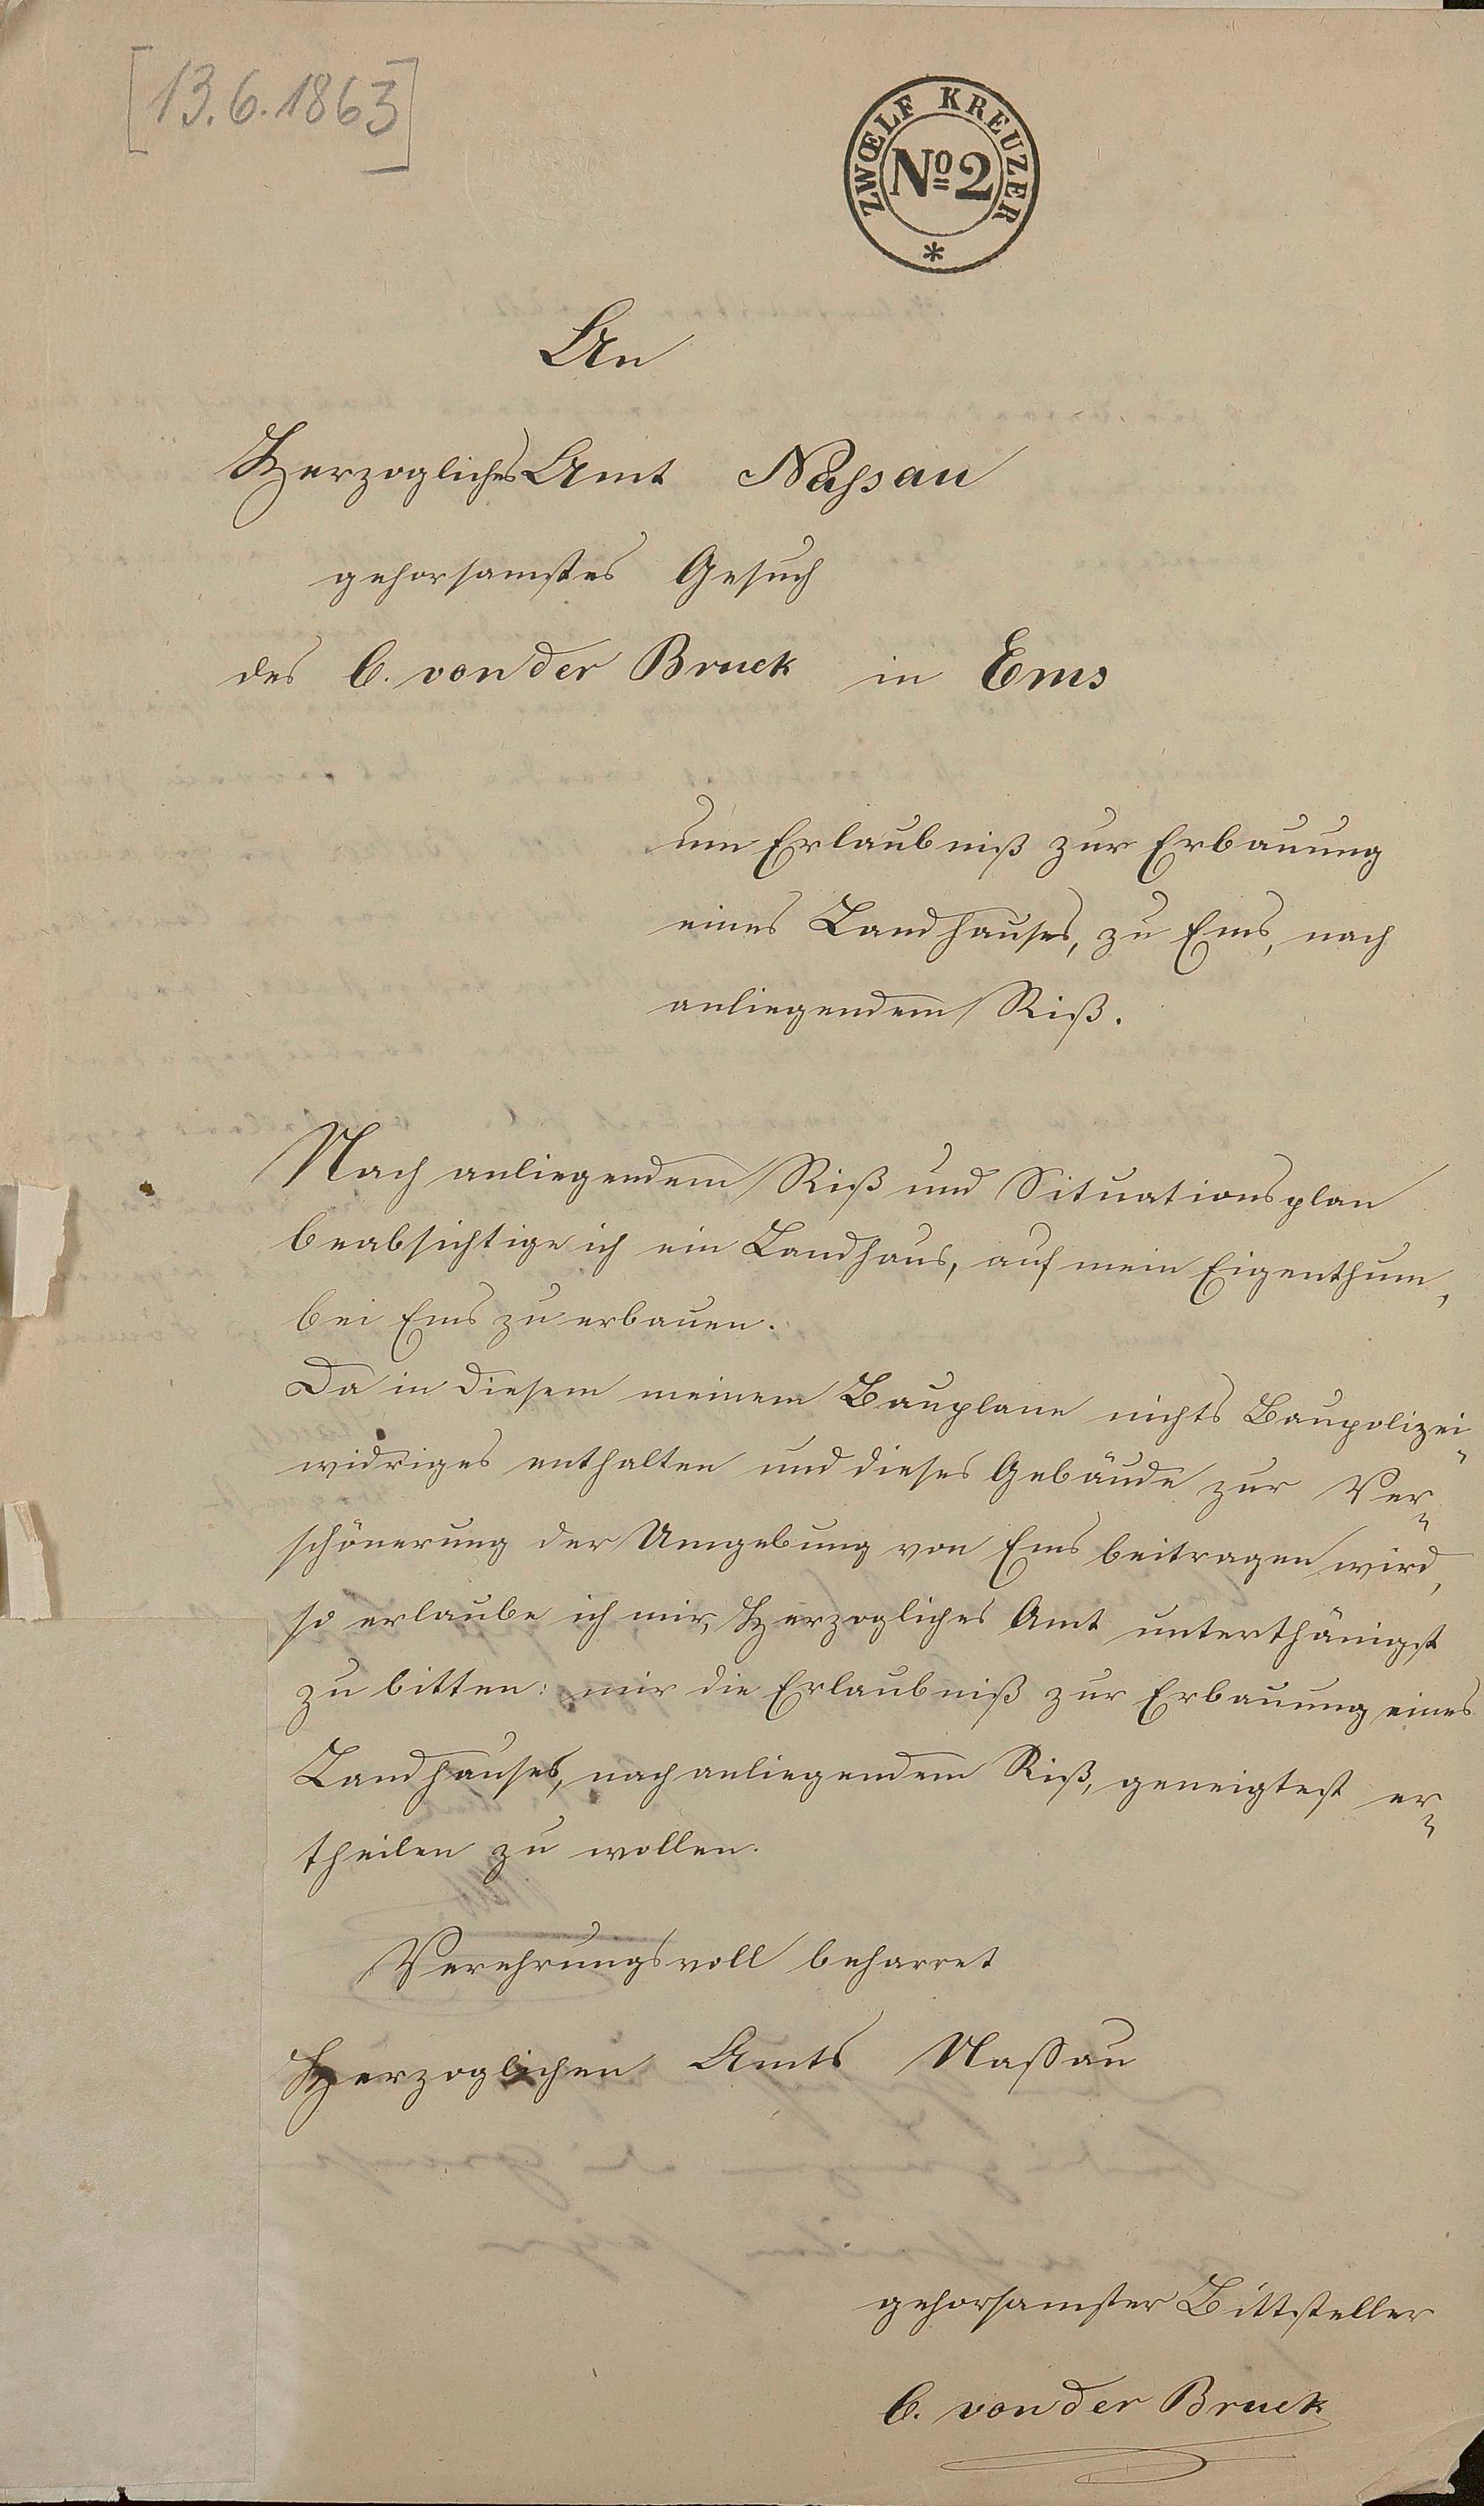 [13.6.1863]
ZWŒLF KREUZER
No 2
*
An
Herzogliches Amt Nassau
gehorsamstes Gesuch
des C. von der Bruck in Ems
um Erlaubniß zur Erbauung
eines Landhauses, zu Ems, nach
anliegendem Riß.
Nach anliegendem Riß und Situationsplan
beabsichtige ich ein Landhaus, auf mein Eigenthum,
bei Ems zu erbauen.
Da in diesem meinem Bauplane nichts Baupolizei-
widriges enthalten und dieses Gebäude zur Ver-
schönerung der Umgebung von Ems beitragen wird,
so erlaube ich mir, Herzogliches Amt unterthänigst
zu bitten: mir die Erlaubniß zur Erbauung eines
Landhauses, nach anliegendem Riß, geneigtest er-
theilen zu wollen.
Verehrungsvoll beharret
Herzoglichen Amts Nassau
gehorsamster Bittsteller
C. von der Bruck